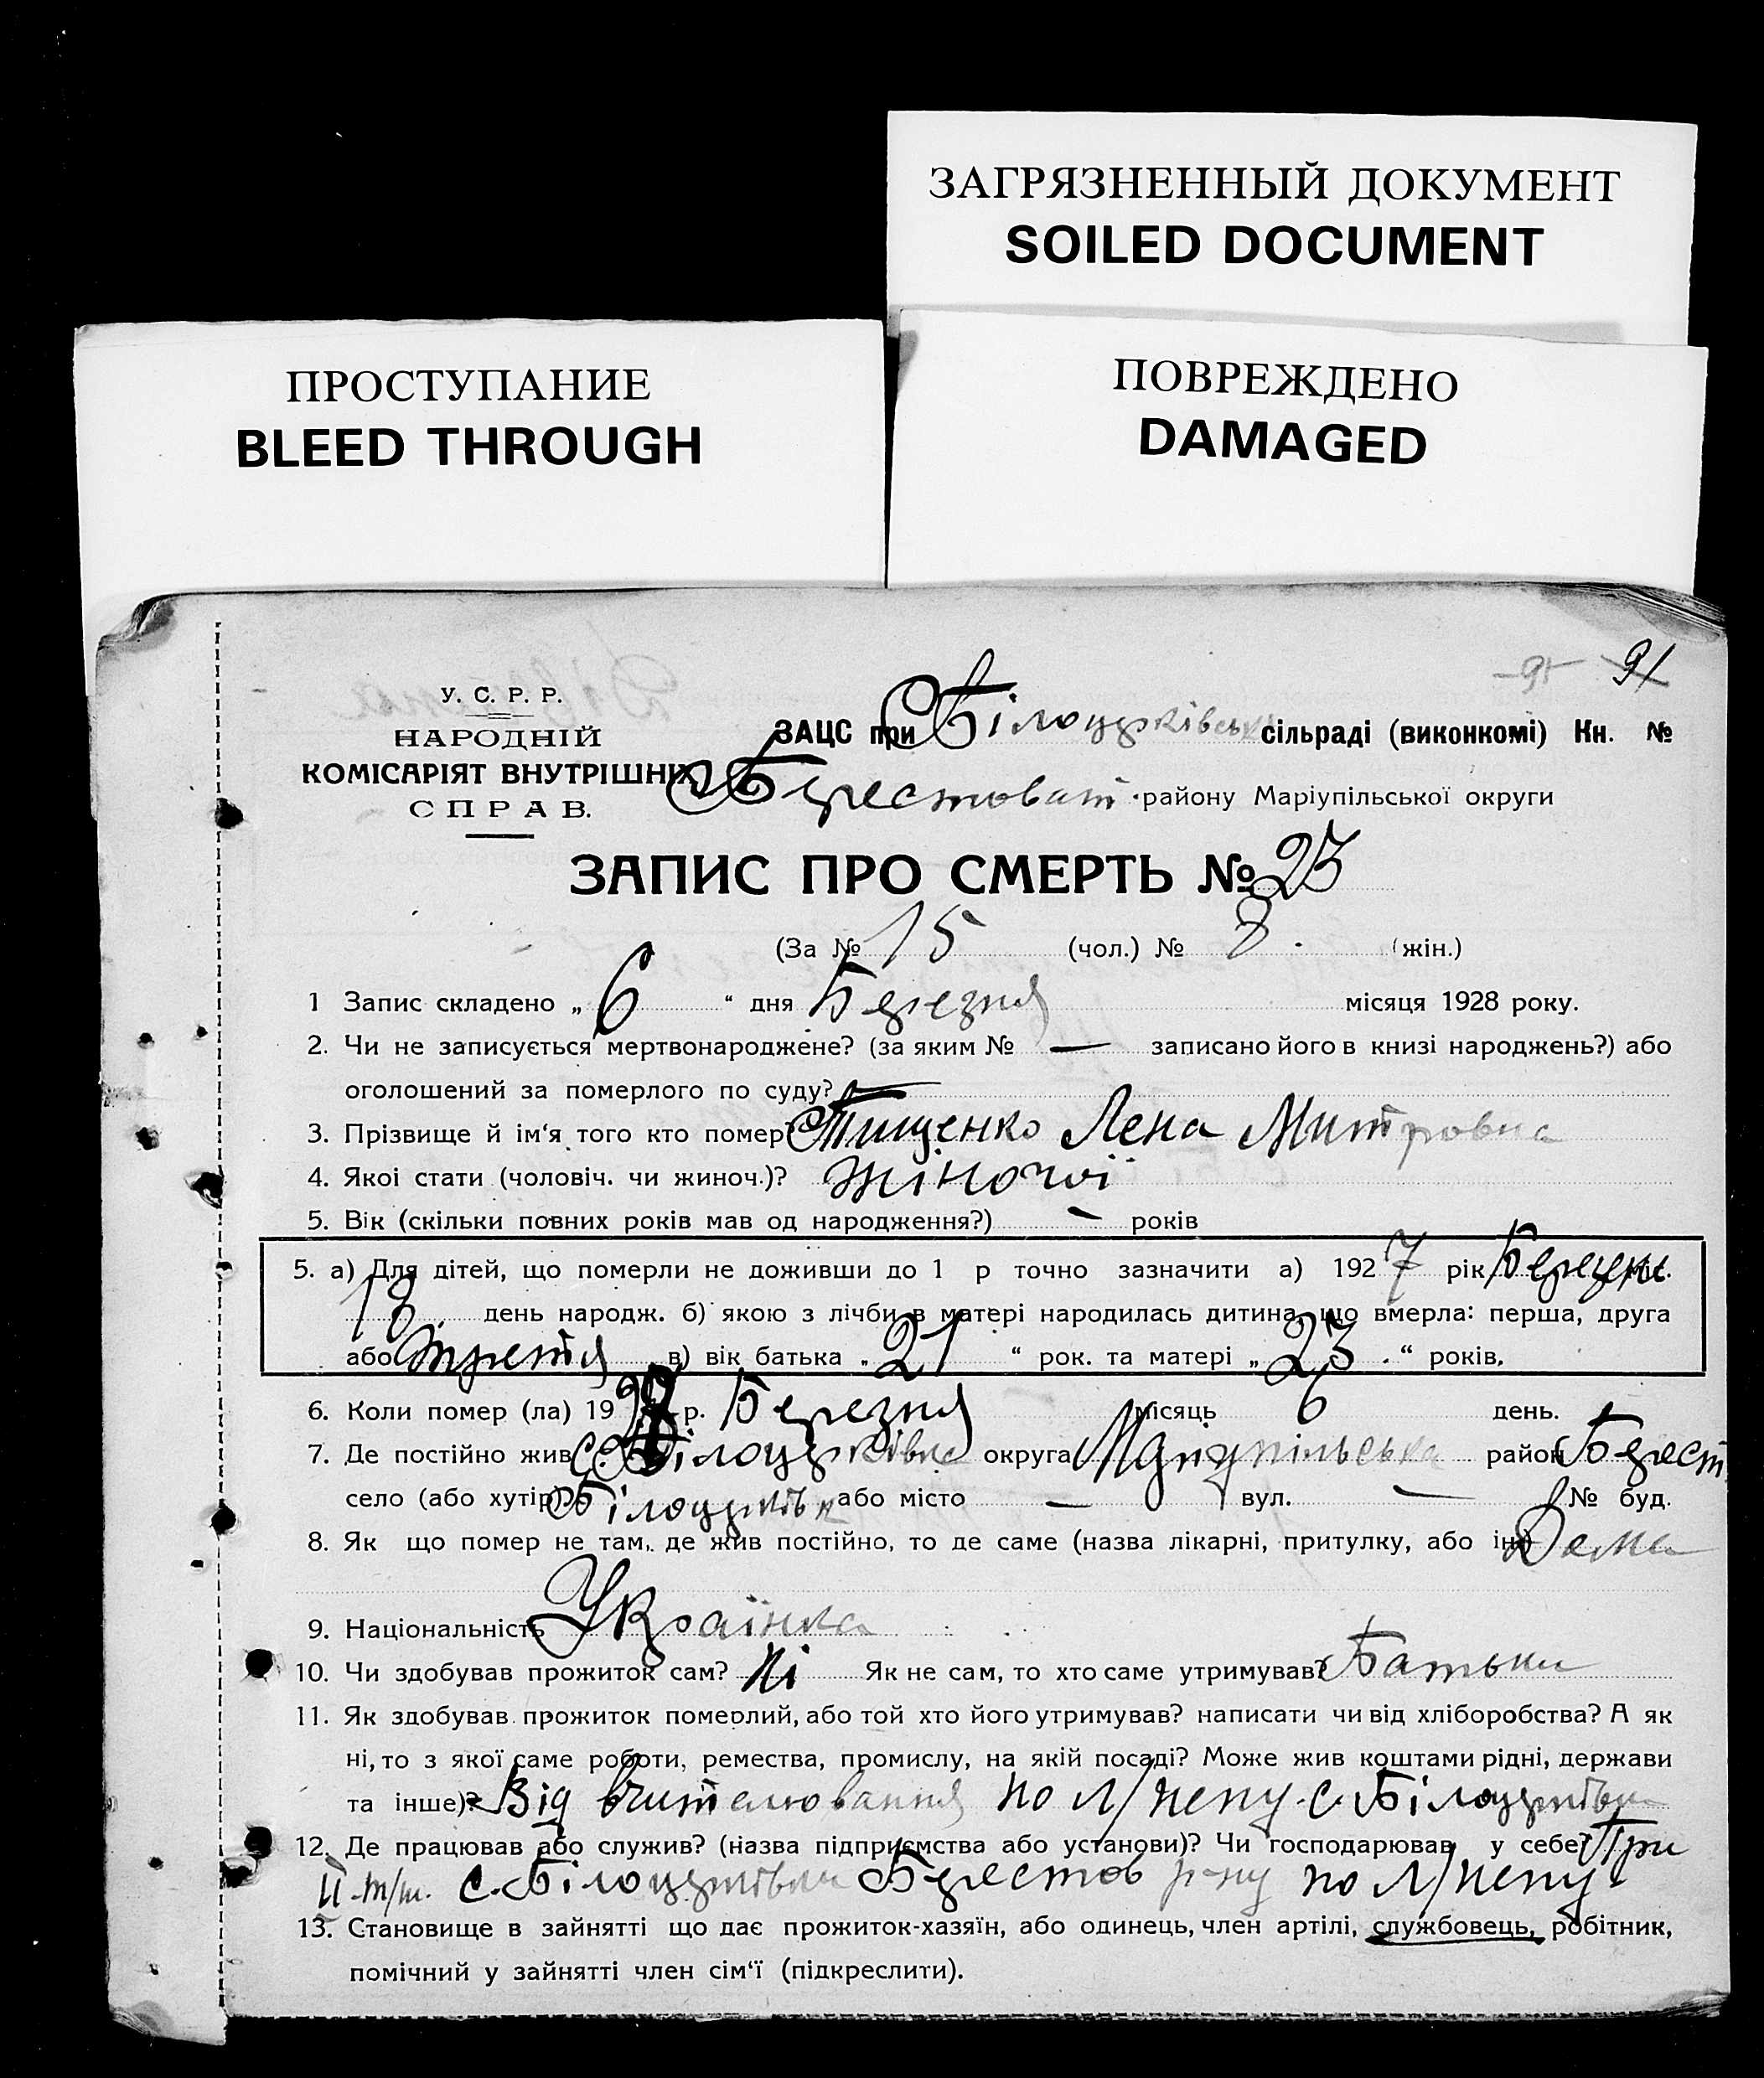 ЗАГРЯЗНЕННЫЙ ДОКУМЕНТ
SOILED DOCUMENT
ПРОСТУПАНИЕ
BLEED THROUGH
ПОВРЕЖДЕНО
DAMAGED
91
У. С. Р. Р.
НАРОДНІЙ
КОМІСАРІЯТ ВНУТРІШНІХ
СПРАВ.
ЗАЦС при Білоцерківськ сільраді (виконкомі) Кн. №
Берестоват. району Маріупільської округи
ЗАПИС ПРО СМЕРТЬ № 23
(За № 15 (чол.) № 8. (жін.)
1 Запис складено „ 6 “ дня Березня місяця 1928 року.
2. Чи не записується мертвонароджене? (за яким № — записано його в книзі народжень?) або
оголошений за померлого по суду? —
3. Прізвище й ім'я того кто помер? Тищенко Лена Митровна
4. Якої стати (чоловіч. чи жиноч.)? жіночої
5. Вік (скільки повних років мав од народження?) - років
5. а) Для дітей, що померли не доживши до 1 р точно зазначити а) 1927 рік
13 день народж. б) якою з лічби в матері народилась дитина, що вмерла: перша, друга
або третя в) вік батька „ 21 “ рок. та матері „ 23 . “ років.
6. Коли помер (ла) 19 р. Березня місяць 6 день.
7. Де постійно жив с. Білоцерківка округа Маріупільська район Берест
село (або хутір) Білоцерківк або місто — вул. — № буд.
8. Як що помер не там, де жив постійно, то де саме (назва лікарні, притулку, або інш) Дома
9. Національність Українка
10. Чи здобував прожиток сам? Ні Як не сам, то хто саме утримував? Батьки
11. Як здобував прожиток померлий, або той хто його утримував? написати чи від хліборобства? А як
ні, то з якої саме роботи, ремества, промислу, на якій посаді? Може жив коштами рідні, держави
та інше)? Від вчителювання по л/непу с. Білоцерківки
12. Де працював або служив? (назва підприємства або установи)? Чи господарював у себе? При
II т/ш. с. Білоцерківки Берестов р-ну по л/непу
13. Становище в зайнятті що дає прожиток-хазяїн, або одинець, член артілі, службовець, робітник,
помічний у зайнятті член сім'ї (підкреслити).